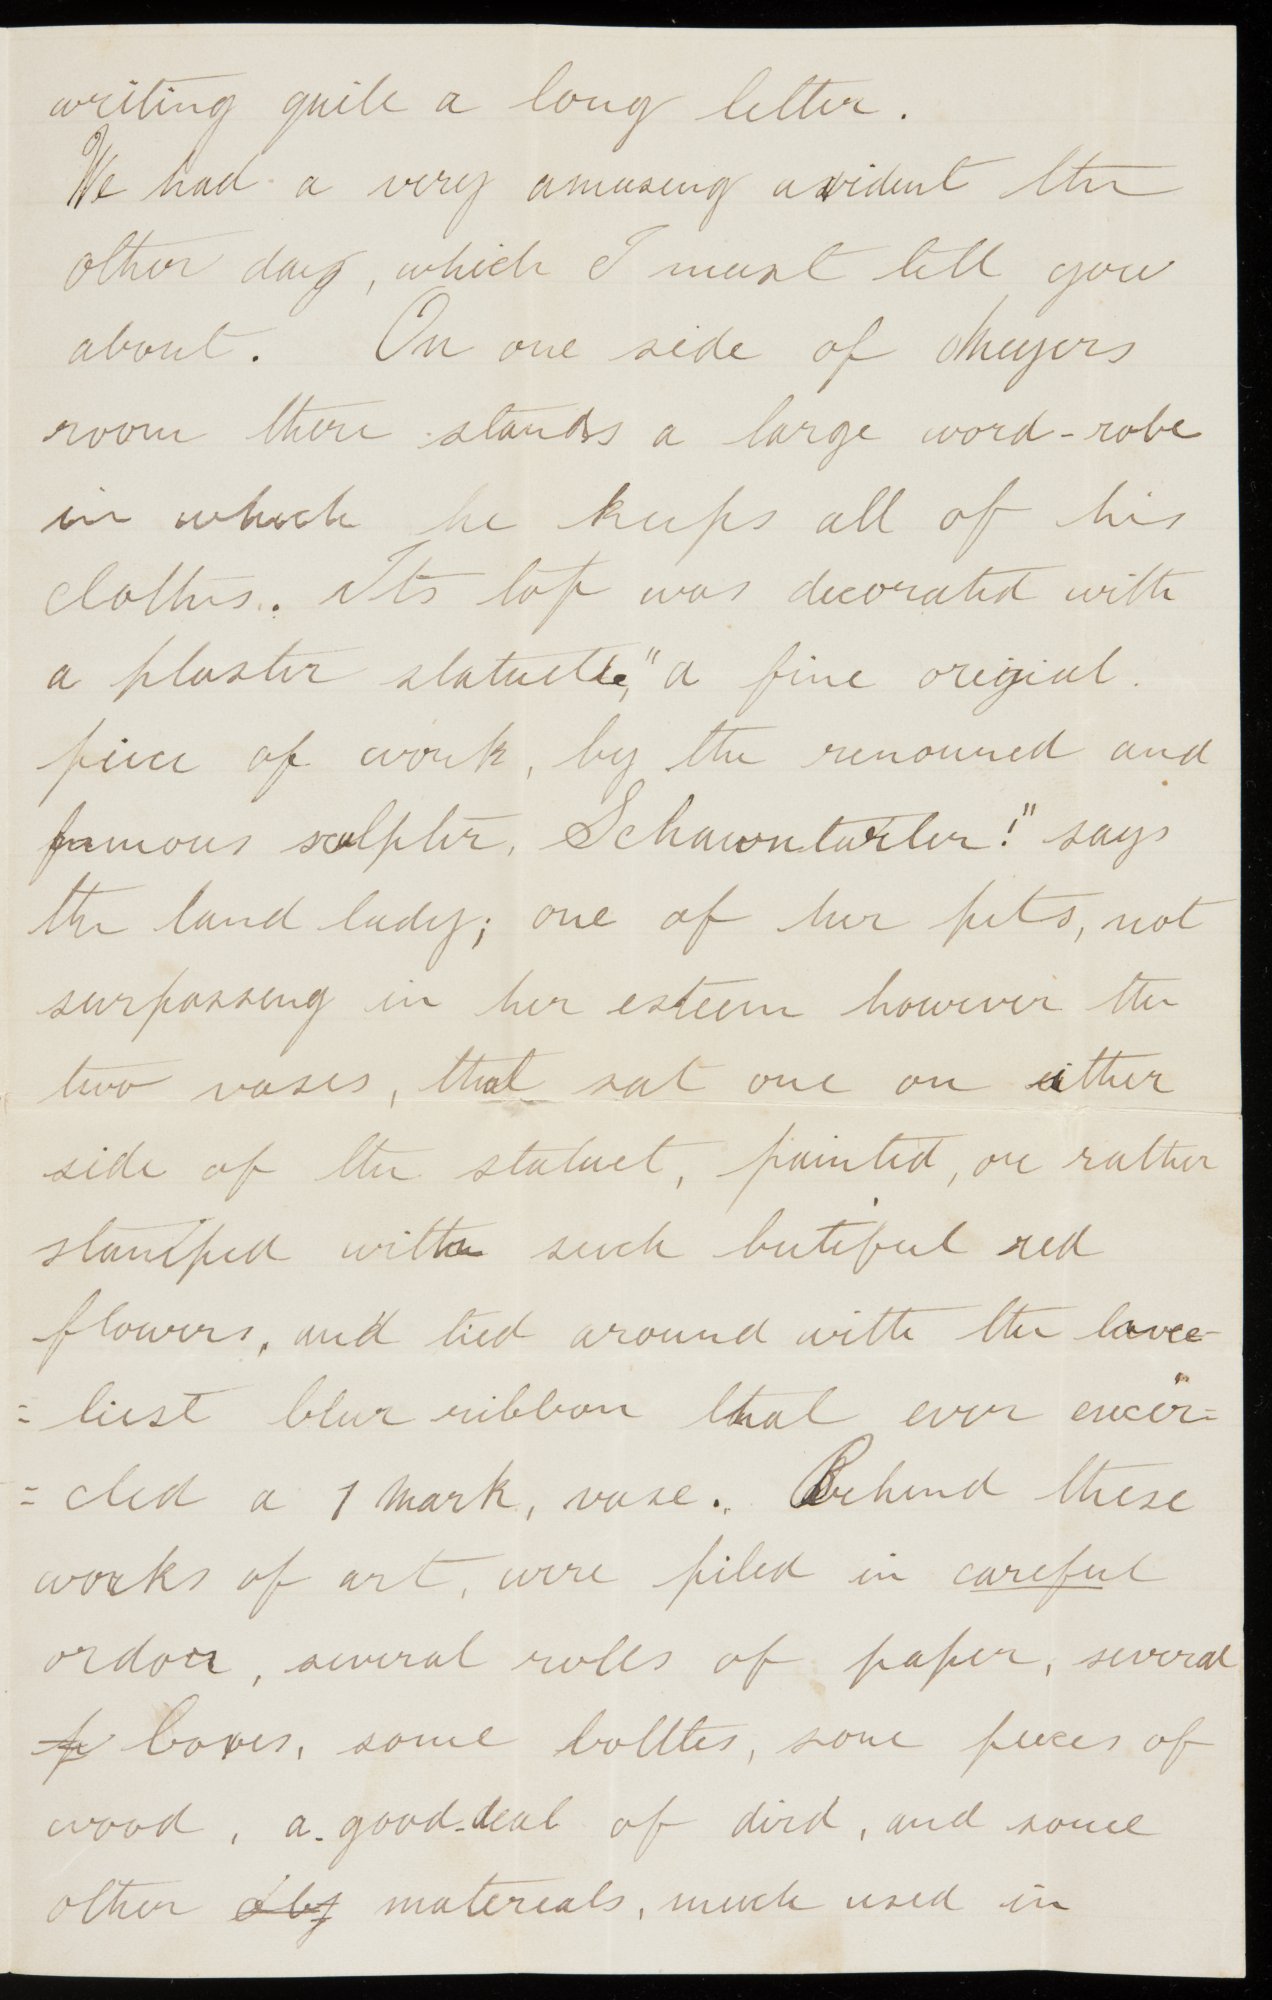 writing quite a long letter.
We had a very amusing acident the
other day, which I must tell you
about. On one side of Meyers
room there stands a large word-robe
in which he keeps all of his
clothes. Its top was decorated with
a plaster statuette, "a fine origial
piece of work, by the renowned and
famous sculpter, Schawntarler!" says
the land lady; one of her pets, not
surpassing in her esteem however the
two vases, that sat one on either
side of the statuet, painted, or rather
stamped with such butiful red
flowers, and tied around with the love-
=liest blue ribbon that ever encir=
=cled a 1 mark, vase. Behind these
works of art, were piled in careful
ordor, several rolls of paper, several
boxes, some bolttes, some pieces of
wood, a good-deal of dird, and some
other matereals, much used in